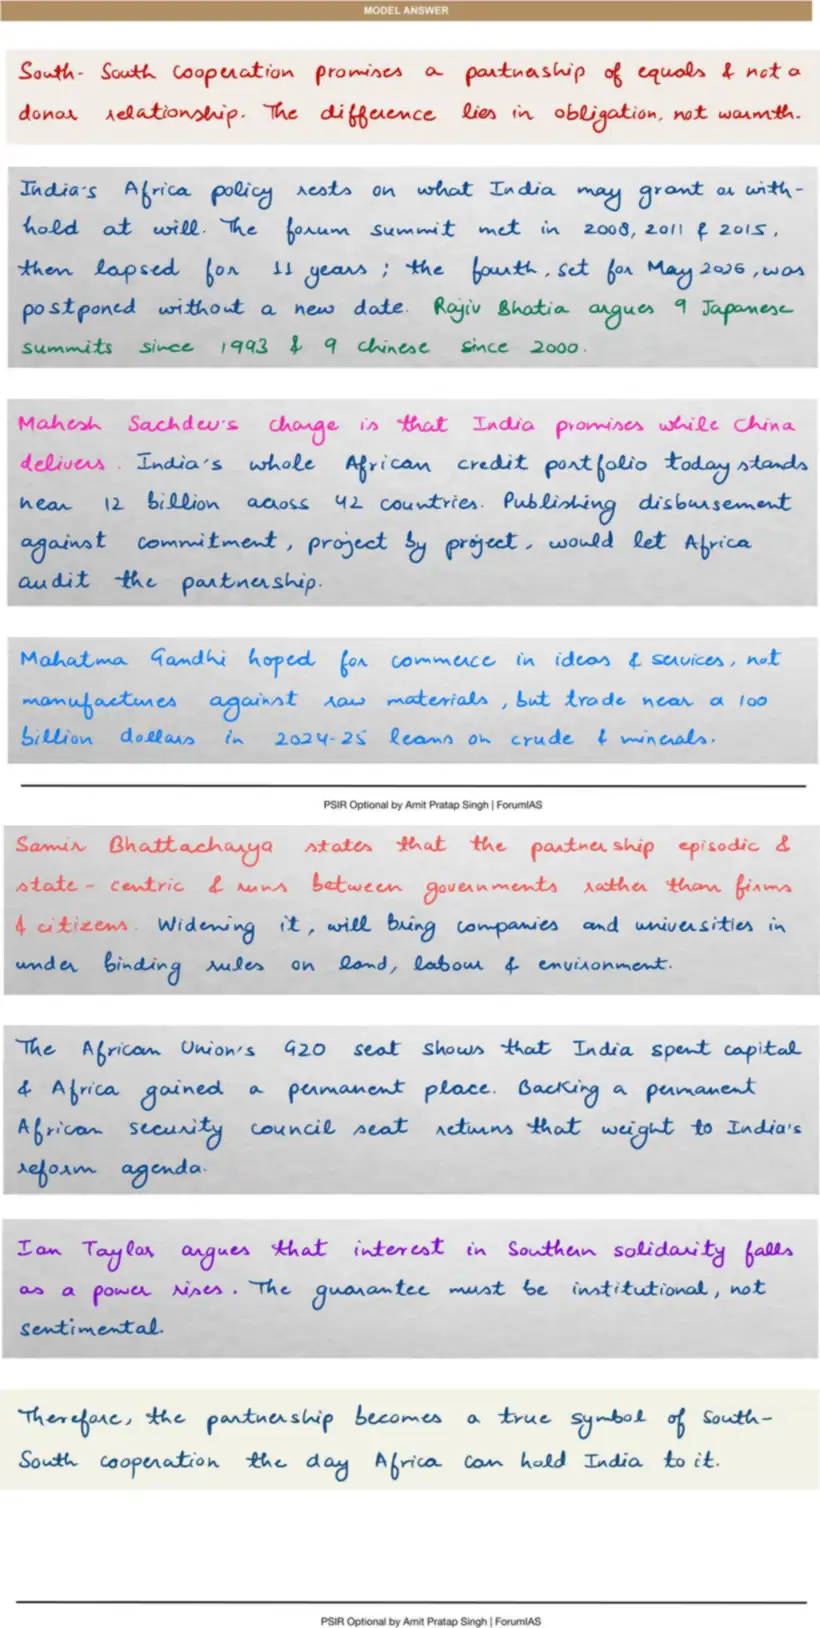 MODEL ANSWER
South- South cooperation promises a partnership of equals & not a
donor relationship. The difference lies in obligation, not warmth.
India's Africa policy rests on what India may grant or with-
hold at will. The forum summit met in 2008, 2011 & 2015,
then lapsed for 11 years ; the fourth, set for May 2026, was
postponed without a new date. Rajiv Bhatia argues 9 Japanese
summits since 1993 & 9 Chinese since 2000.
Mahesh Sachdev's charge is that India promises while China
delivers. India's whole African credit portfolio today stands
near 12 billion across 42 countries. Publishing disbursement
against commitment, project by project, would let Africa
audit the partnership.
Mahatma Gandhi hoped for commerce in ideas & services, not
manufactures against raw materials, but trade near a 100
billion dollars in 2024-25 leans on crude & minerals.
PSIR Optional by Amit Pratap Singh | ForumIAS
Samir Bhattacharya states that the partnership episodic &
state-centric & runs between governments rather than firms
& citizens. Widening it, will bring companies and universities in
under binding rules on land, labour & environment.
The African Union's G20 seat shows that India spent capital
& Africa gained a permanent place. Backing a permanent
African security council seat returns that weight to India's
reform agenda.
Ian Taylor argues that interest in Southern solidarity falls
as a power rises. The guarantee must be institutional, not
sentimental.
Therefore, the partnership becomes a true symbol of South-
South cooperation the day Africa can hold India to it.
PSIR Optional by Amit Pratap Singh | ForumIAS